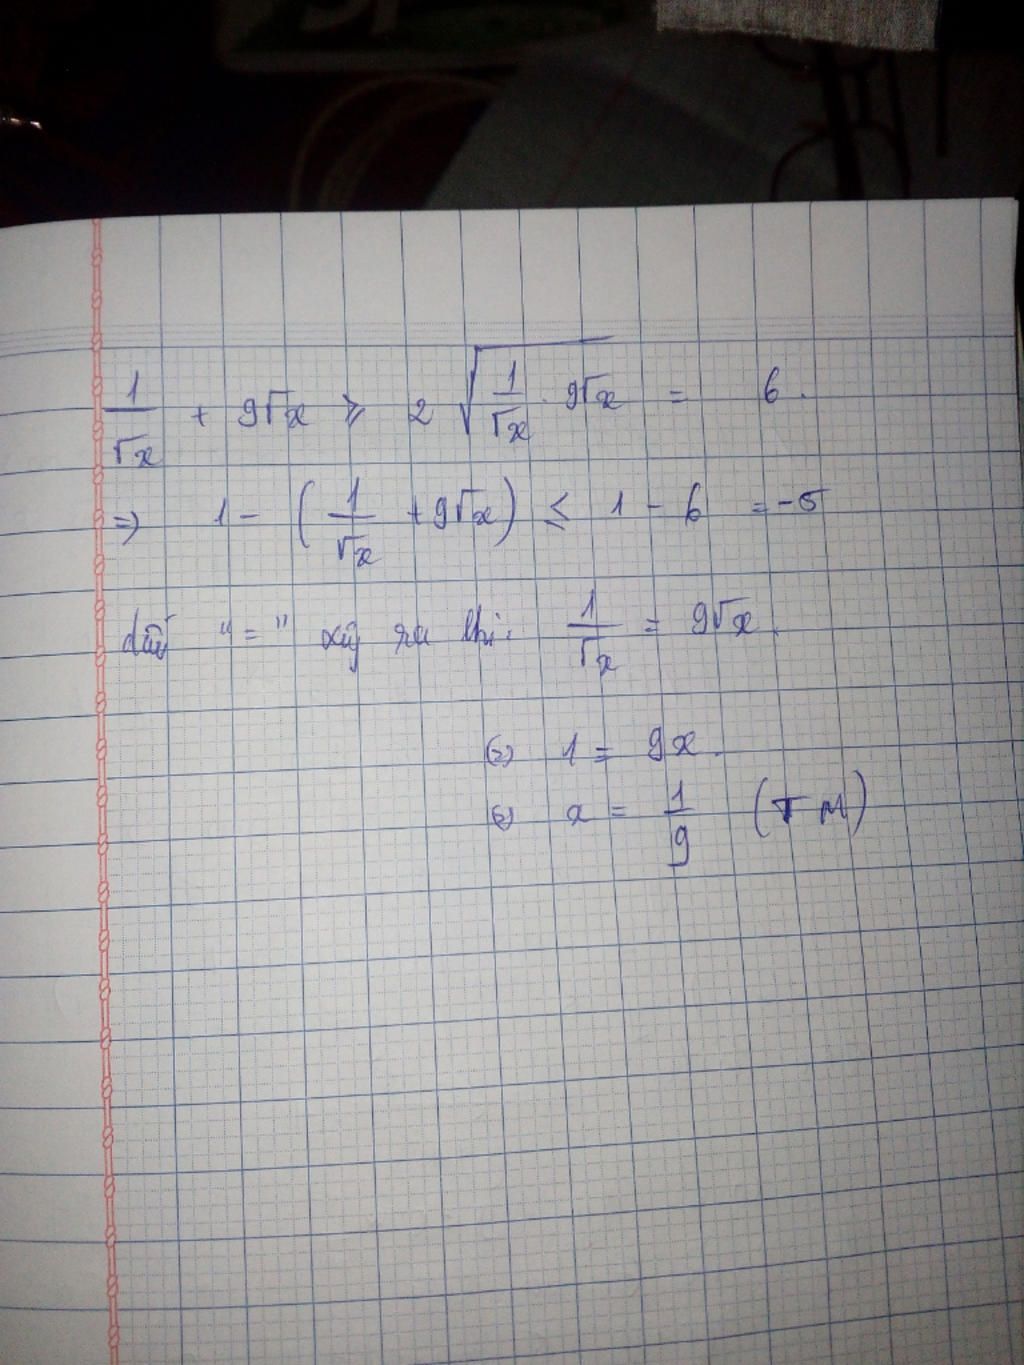 1/√x + 9√x ≥ 2 √(1/√x . 9√x) = 6.
=> 1 - (1/√x + 9√x) ≤ 1 - 6 = -5
dấu "=" xảy ra khi: 1/√x = 9√x.
<=> 1 = 9x.
<=> x = 1/9 (TM)